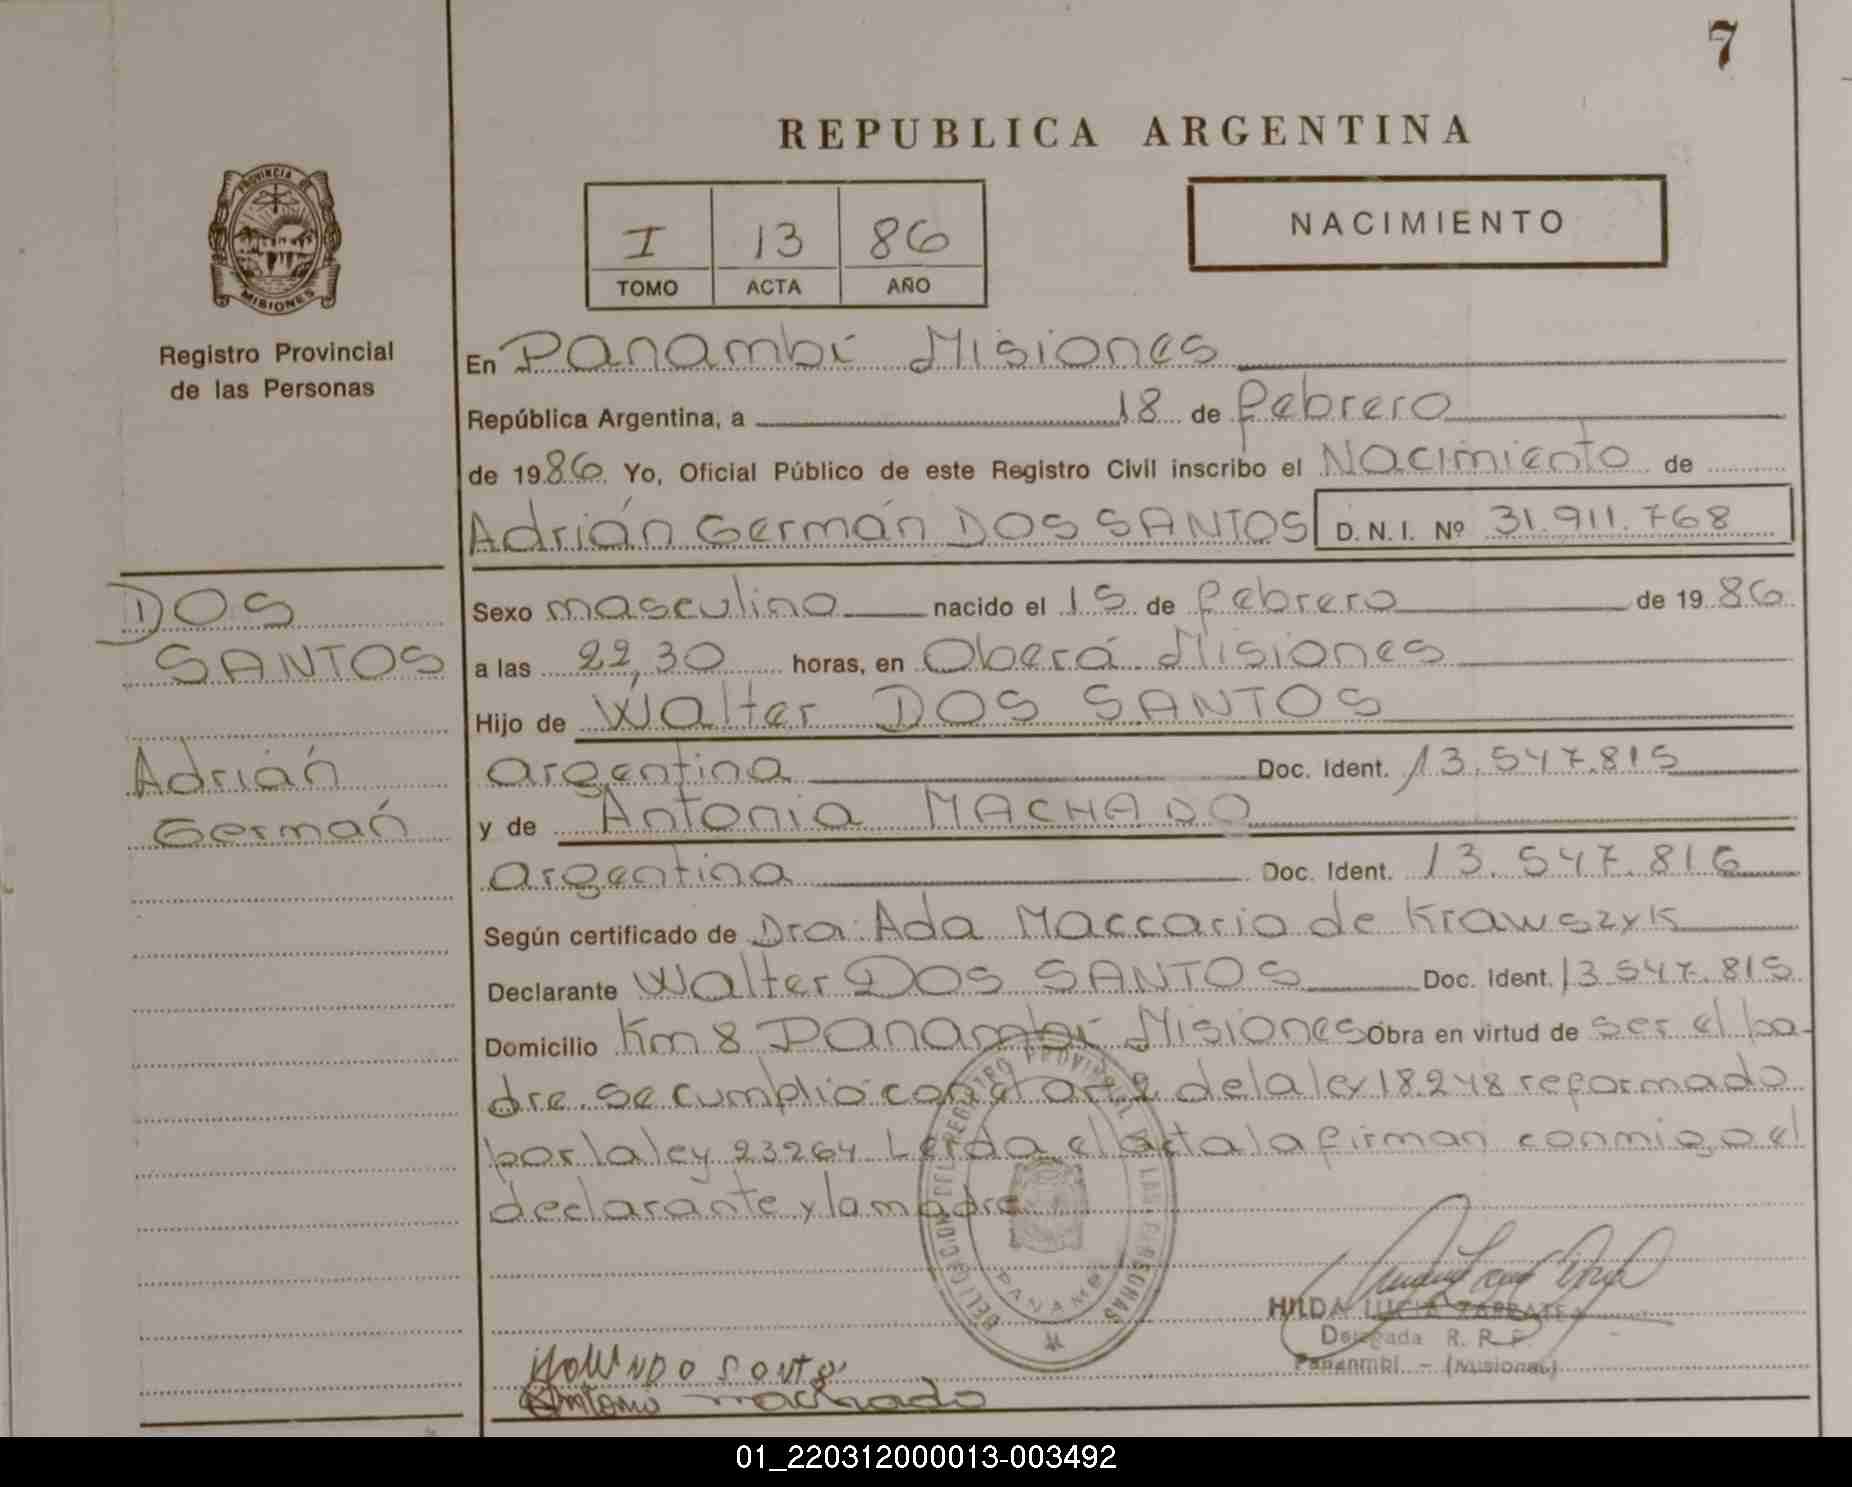 7
REPUBLICA ARGENTINA
PROVINCIA DE
MISIONES
Registro Provincial
de las Personas
I 13 86
TOMO ACTA AÑO
NACIMIENTO
En Panambí Misiones
República Argentina, a 18 de febrero
de 1986 Yo, Oficial Público de este Registro Civil inscribo el Nacimiento de
Adrián Germán DOS SANTOS D.N.I. Nº 31.911.768
DOS
SANTOS
Adrián
Germán
Sexo masculino nacido el 15 de febrero de 1986
a las 22,30 horas, en Oberá Misiones
Hijo de Walter DOS SANTOS
argentina Doc. Ident. 13.547.815
y de Antonia MACHADO
argentina Doc. Ident. 13.547.816
Según certificado de Dra. Ada Maccario de Krawszyk
Declarante Walter DOS SANTOS Doc. Ident. 13.547.815
Domicilio Km 8 Panambí Misiones Obra en virtud de ser el pa-
dre. se cumplió con el art 2 de la ley 18.248 reformado
por la ley 23264 Leída el acta la firman conmigo el
declarante y la madre
DELEGACION DEL REGISTRO PROVINCIAL DE LAS PERSONAS
PANAMBI
HILDA LUCIA
Delegada R. R. P.
Pananmbi - (Misiones)
machado
01_220312000013-003492